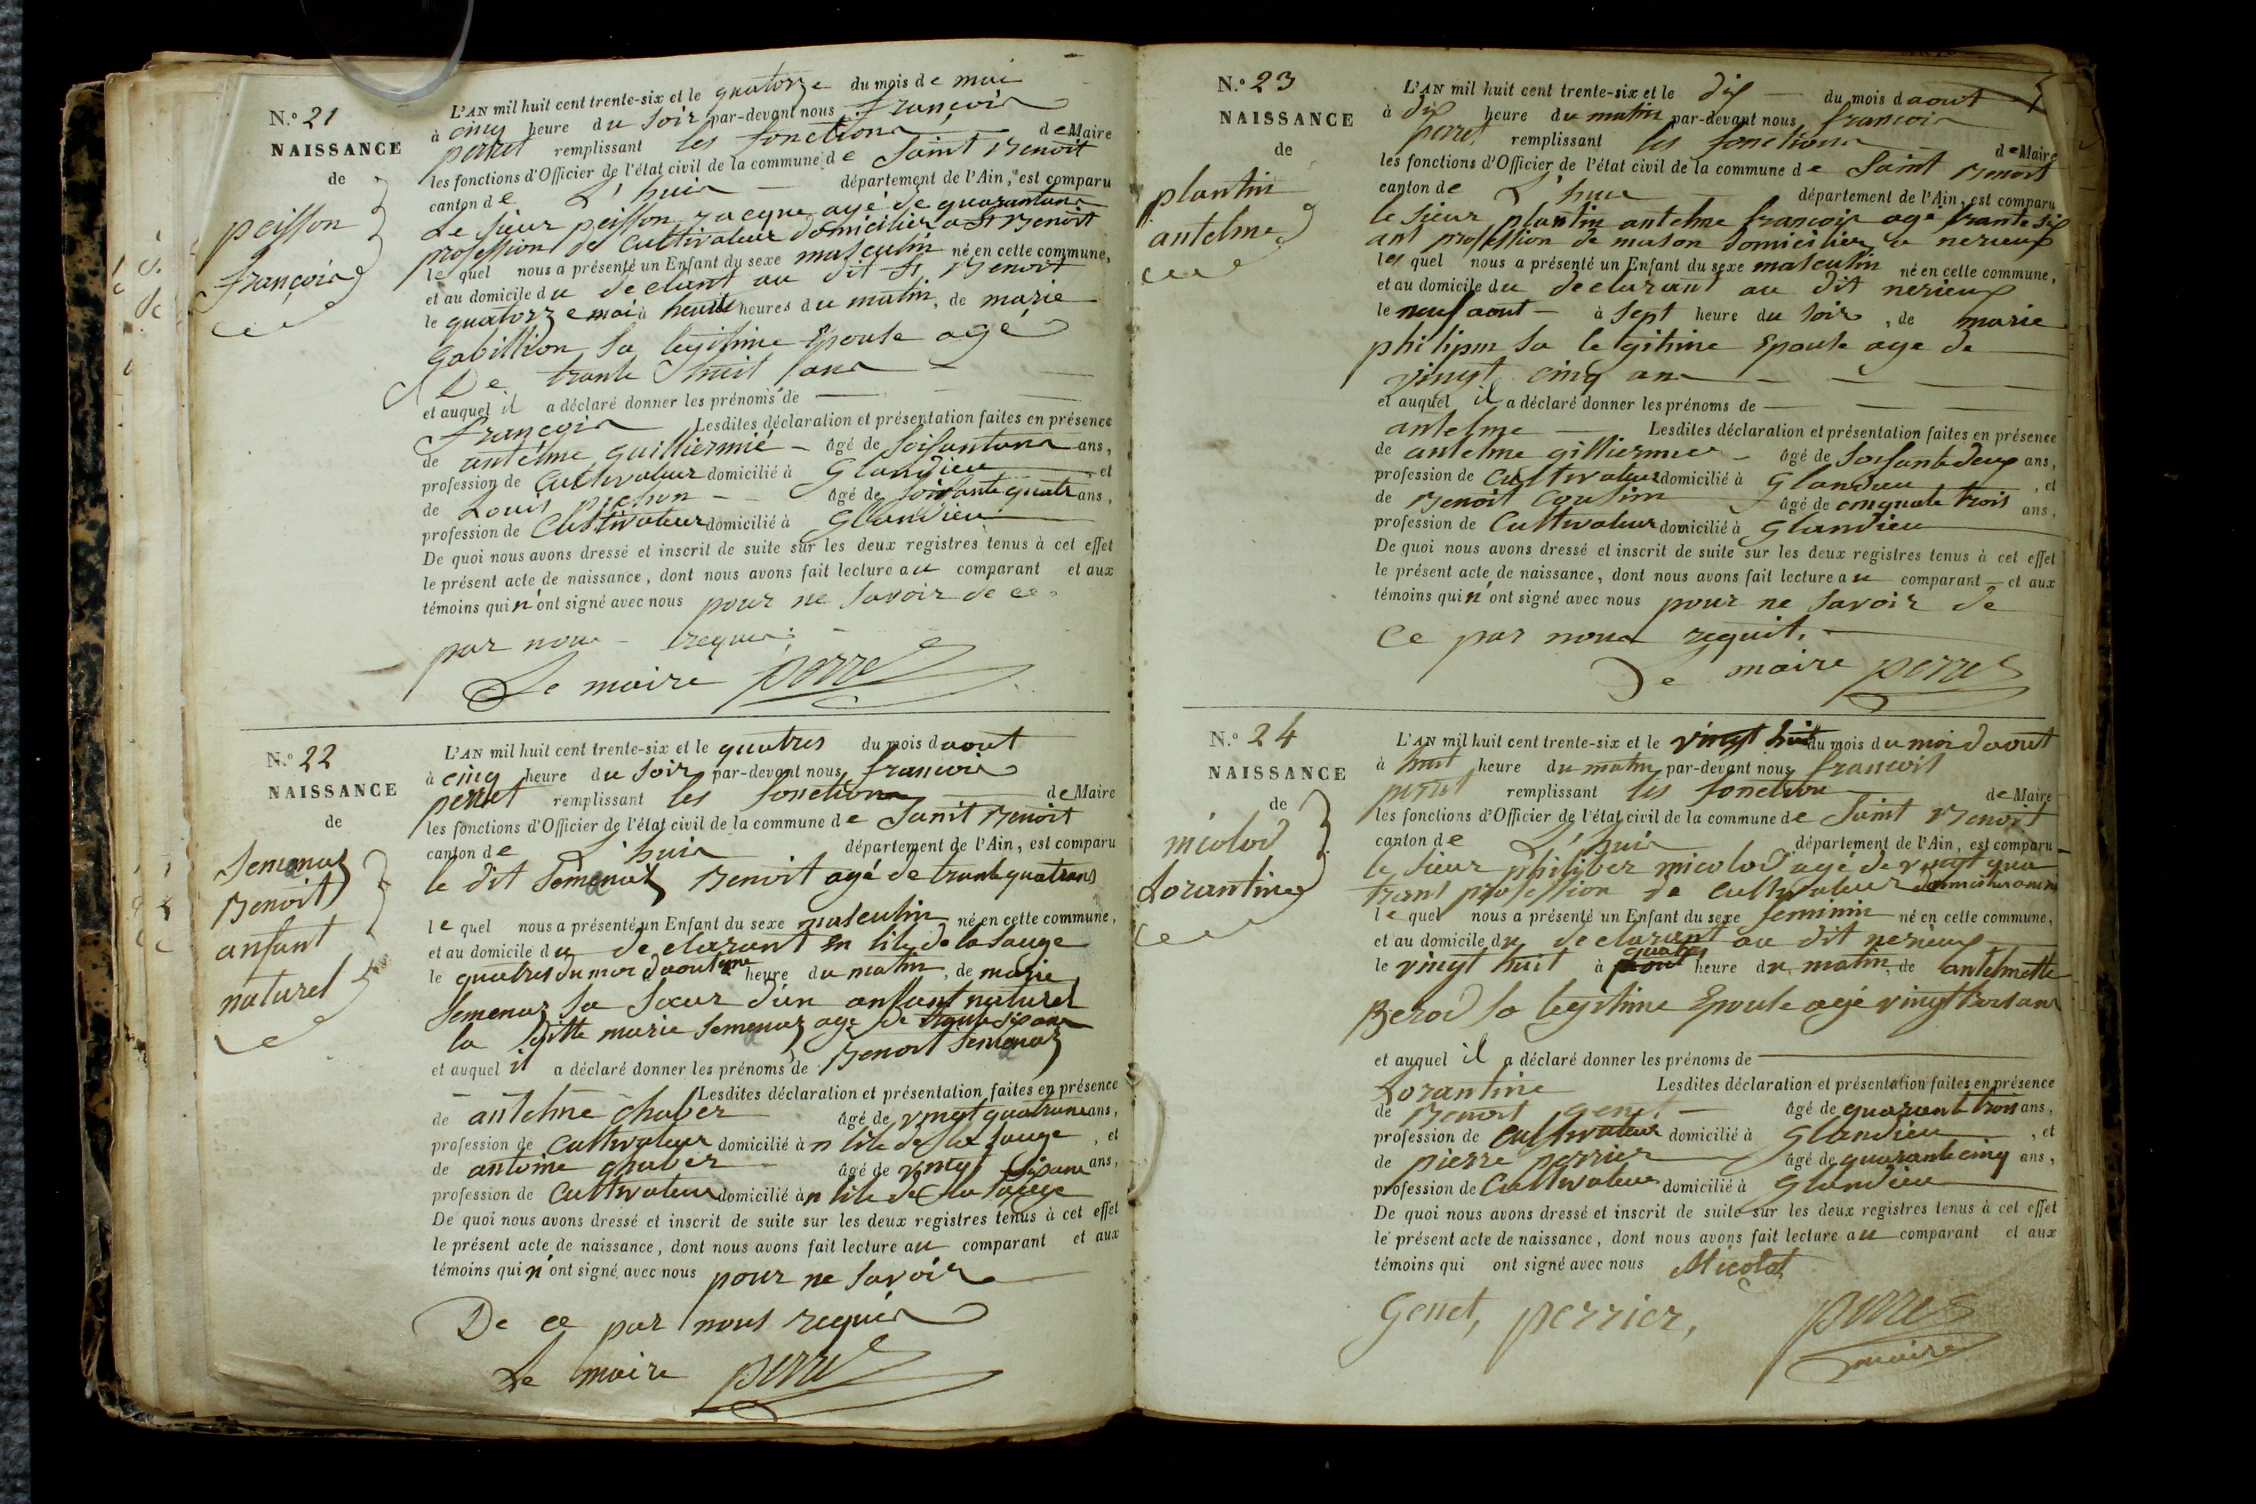 N.o 21
NAISSANCE
de
peisson
françois
L'AN mil huit cent trente-six et le quatorze du mois de mai
à cinq heure du soir par-devant nous françois
perret remplissant les fonctions de Maire
les fonctions d'Officier de l'état civil de la commune de Saint Benoit
canton de L'huis département de l'Ain, est comparu
Le sieur peisson Jacque agé de quarantans
profession de cultivateur domicilier a St Benoit
le quel nous a présenté un Enfant du sexe masculin né en cette commune,
et au domicile du declarant au dit St Benoit
le quatorze mai à heures du matin, de marie
gabillion sa legitime Epouse agé
De trante huit ans
et auquel il a déclaré donner les prénoms de
françois Lesdites déclaration et présentation faites en présence
de antelme guilliermié âgé de soisantans ans,
profession de cultivateur domicilié à Glandieu et
de Louis pichon âgé de soisante quatr ans,
profession de Cultivateur domicilié à Glandieu
De quoi nous avons dressé et inscrit de suite sur les deux registres tenus à cet effet
le présent acte de naissance, dont nous avons fait lecture au comparant et aux
témoins qui n'ont signé avec nous pour ne savoir de ce
par nous requis
Le maire perret
N.o 22
NAISSANCE
de
Semenaz
Benoit
anfant
naturel
L'AN mil huit cent trente-six et le quatres du mois d aout
à cinq heure du soir par-devant nous francois
perret remplissant les fonctions de Maire
les fonctions d'Officier de l'état civil de la commune de Sanit Benoit
canton de L'huis département de l'Ain, est comparu
le dit Semenaz Benoit agé de trante quatrans
le quel nous a présenté un Enfant du sexe masculin né en cette commune,
et au domicile du declarant en lile de la sauge
le quatres du moi daout heure du matin, de marie
Semenaz sa sœur d'un anfant naturel
la ditte marie Semenaz age de trante six ans
et auquel il a déclaré donner les prénoms de Benoit Semenaz
Lesdites déclaration et présentation faites en présence
de antelme chaber âgé de vingt quatrans ans,
profession de cultivateur domicilié à n lile de la sauge, et
de antoine chaber âgé de vingt sixans ans,
profession de Cultivateur domicilié à n lile de la sauge
De quoi nous avons dressé et inscrit de suite sur les deux registres tenus à cet effet
le présent acte de naissance, dont nous avons fait lecture au comparant et aux
témoins qui n'ont signé avec nous pour ne savoir
De ce par nous requis
Le maire perret
N.o 23
NAISSANCE
de
plantin
antelme
L'AN mil huit cent trente-six et le dix du mois d aout
à dix heure du matin par-devant nous francois
perret remplissant les fonctions de Maire
les fonctions d'Officier de l'état civil de la commune de Saint Benoit
canton de L'huis département de l'Ain, est comparu
le sieur plantin antelme francois agé trante six
ans profession de mason domicilier a nerieux
les quel nous a présenté un Enfant du sexe masculin né en cette commune,
et au domicile du declarant au dit nerieux
le neuf aout à sept heure du soir, de marie
philipin sa legitime Epouse age de
vingt cinq ans
et auquel il a déclaré donner les prénoms de
antelme Lesdites déclaration et présentation faites en présence
de antelme gilliermier âgé de soisante deux ans,
profession de cultivateur domicilié à Glandieu, et
de Benoit Cousin âgé de cinquate trois ans,
profession de Cultivateur domicilié à Glandieu
De quoi nous avons dressé et inscrit de suite sur les deux registres tenus à cet effet
le présent acte de naissance, dont nous avons fait lecture au comparant et aux
témoins qui n'ont signé avec nous pour ne savoir de
Ce par nous requit.
Le maire perret
N.o 24
NAISSANCE
de
micolod
Lorantine
L'AN mil huit cent trente-six et le vingt huit du mois du moi daout
à huit heure du matin par-devant nous francois
perret remplissant les fonctions de Maire
les fonctions d'Officier de l'état civil de la commune de Saint Benoit
canton de L'huis département de l'Ain, est comparu
le sieur philiber micolod agé de vingt qua
trans profession de cultivateur
le quel nous a présenté un Enfant du sexe feminin né en cette commune,
et au domicile du declarant au dit nerieux
le vingt huit à quatres heure du matin, de antelmette
Berod sa legitime Epouse agé vingt trois ans
et auquel il a déclaré donner les prénoms de
Lorantine Lesdites déclaration et présentation faites en présence
de Benoit genet âgé de quarante trois ans,
profession de Cultivateur domicilié à Glandieu, et
de pierre perrier âgé de quarante cinq ans,
profession de Cultivateur domicilié à Glandieu
De quoi nous avons dressé et inscrit de suite sur les deux registres tenus à cet effet
le présent acte de naissance, dont nous avons fait lecture au comparant et aux
témoins qui ont signé avec nous Micolod
Genet, perrier, perret
maire